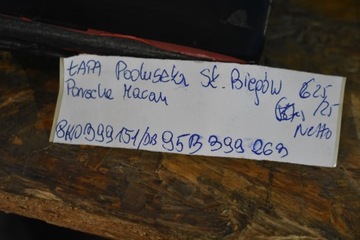 ŁAPA Poduszka Sk. Biegów 625
Porsche Macan /25
Netto
8K0399151/DB 95B 399 263